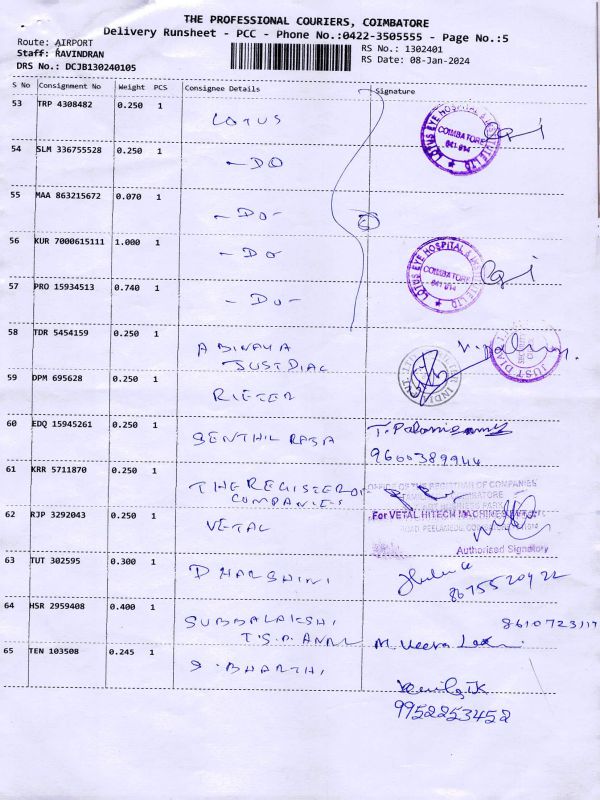 THE PROFESSIONAL COURIERS, COIMBATORE
Delivery Runsheet - PCC - Phone No.:0422-3505555 - Page No.:5
Route: AIRPORT
Staff: RAVINDRAN
DRS No.: DCJB130240105
RS No.: 1302401
RS Date: 08-Jan-2024
S No Consignment No Weight PCS Consignee Details Signature
53 TRP 4308482 0.250 1 LOTUS
LOTUS EYE HOSPITAL & INSTITUTE LTD
COIMBATORE
641 014
54 SLM 336755528 0.250 1 - DO
55 MAA 863215672 0.070 1 - DO -
56 KUR 7000615111 1.000 1 - DO
LOTUS EYE HOSPITAL & INSTITUTE LTD
COIMBATORE
641 014
57 PRO 15934513 0.740 1 - DO -
58 TDR 5454159 0.250 1 ABINAYA
JUSTDIAL
JUST DIAL
59 DPM 695628 0.250 1 RIETER
60 EDQ 15945261 0.250 1 SENTHIL RAJA T. Palanisamy
9600389944
61 KRR 5711870 0.250 1 THE REGISTER OF
COMPANIES
OFFICE OF THE REGISTRAR OF COMPANIES
COIMBATORE
62 RJP 3292043 0.250 1 VETAL
For VETAL HITECH MACHINES
Authorised Signatory
63 TUT 302595 0.300 1 DHARSHINI
64 HSR 2959408 0.400 1 SUBBALAKSHI
8610723117
M. Veera Laxmi
65 TEN 103508 0.245 1 S. BHARTHI
9952253452